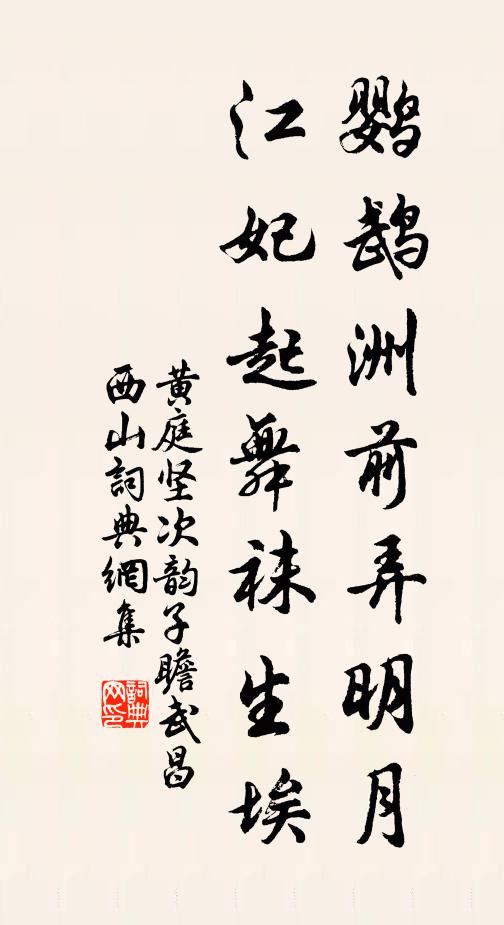 鹦鹉洲前弄明月
江妃起舞袜生埃
黄庭坚次韵子瞻武昌
西山詞典網集
詞典网印